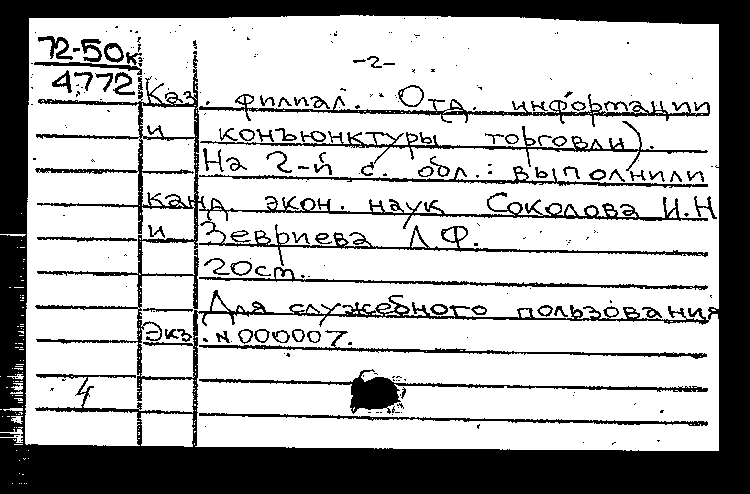 72-50к
4772
-2-
Каз. филиал. Отд. информации
и конъюнктуры торговли).
На 2-й с. обл.: выполнили
канд. экон. наук Соколова И.Н
и Зевриева Л.Ф.
20ст.
Для служебного пользования
Экз. N 000007.
4